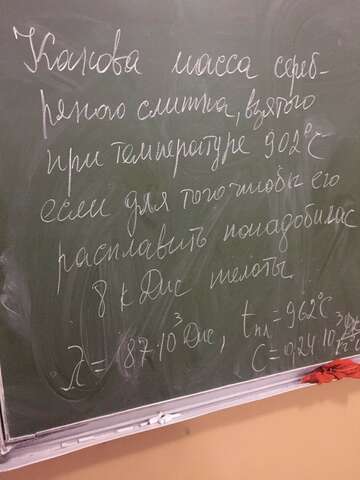 Какова масса сереб-
ряного слитка, взятого
при температуре 902°С
если для того чтобы его
расплавить понадобилас
8 кДж теплоты
λ = 87·10³ Дж, tпл = 962°С
C = 0,24·10³